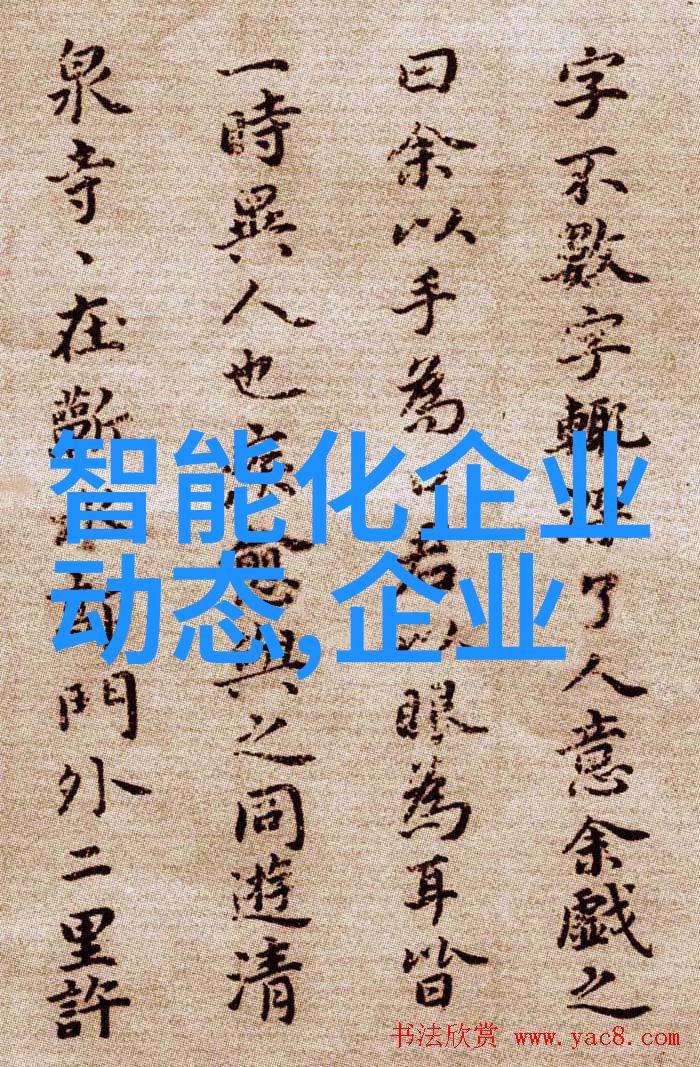 字不數字輒了人意余戲之
曰余以手為以眼為耳皆
一時異人也疾與之同遊清
泉寺、在蘄門外二里許
智能化企业
动态,企业
书法欣赏 www.yac8.com